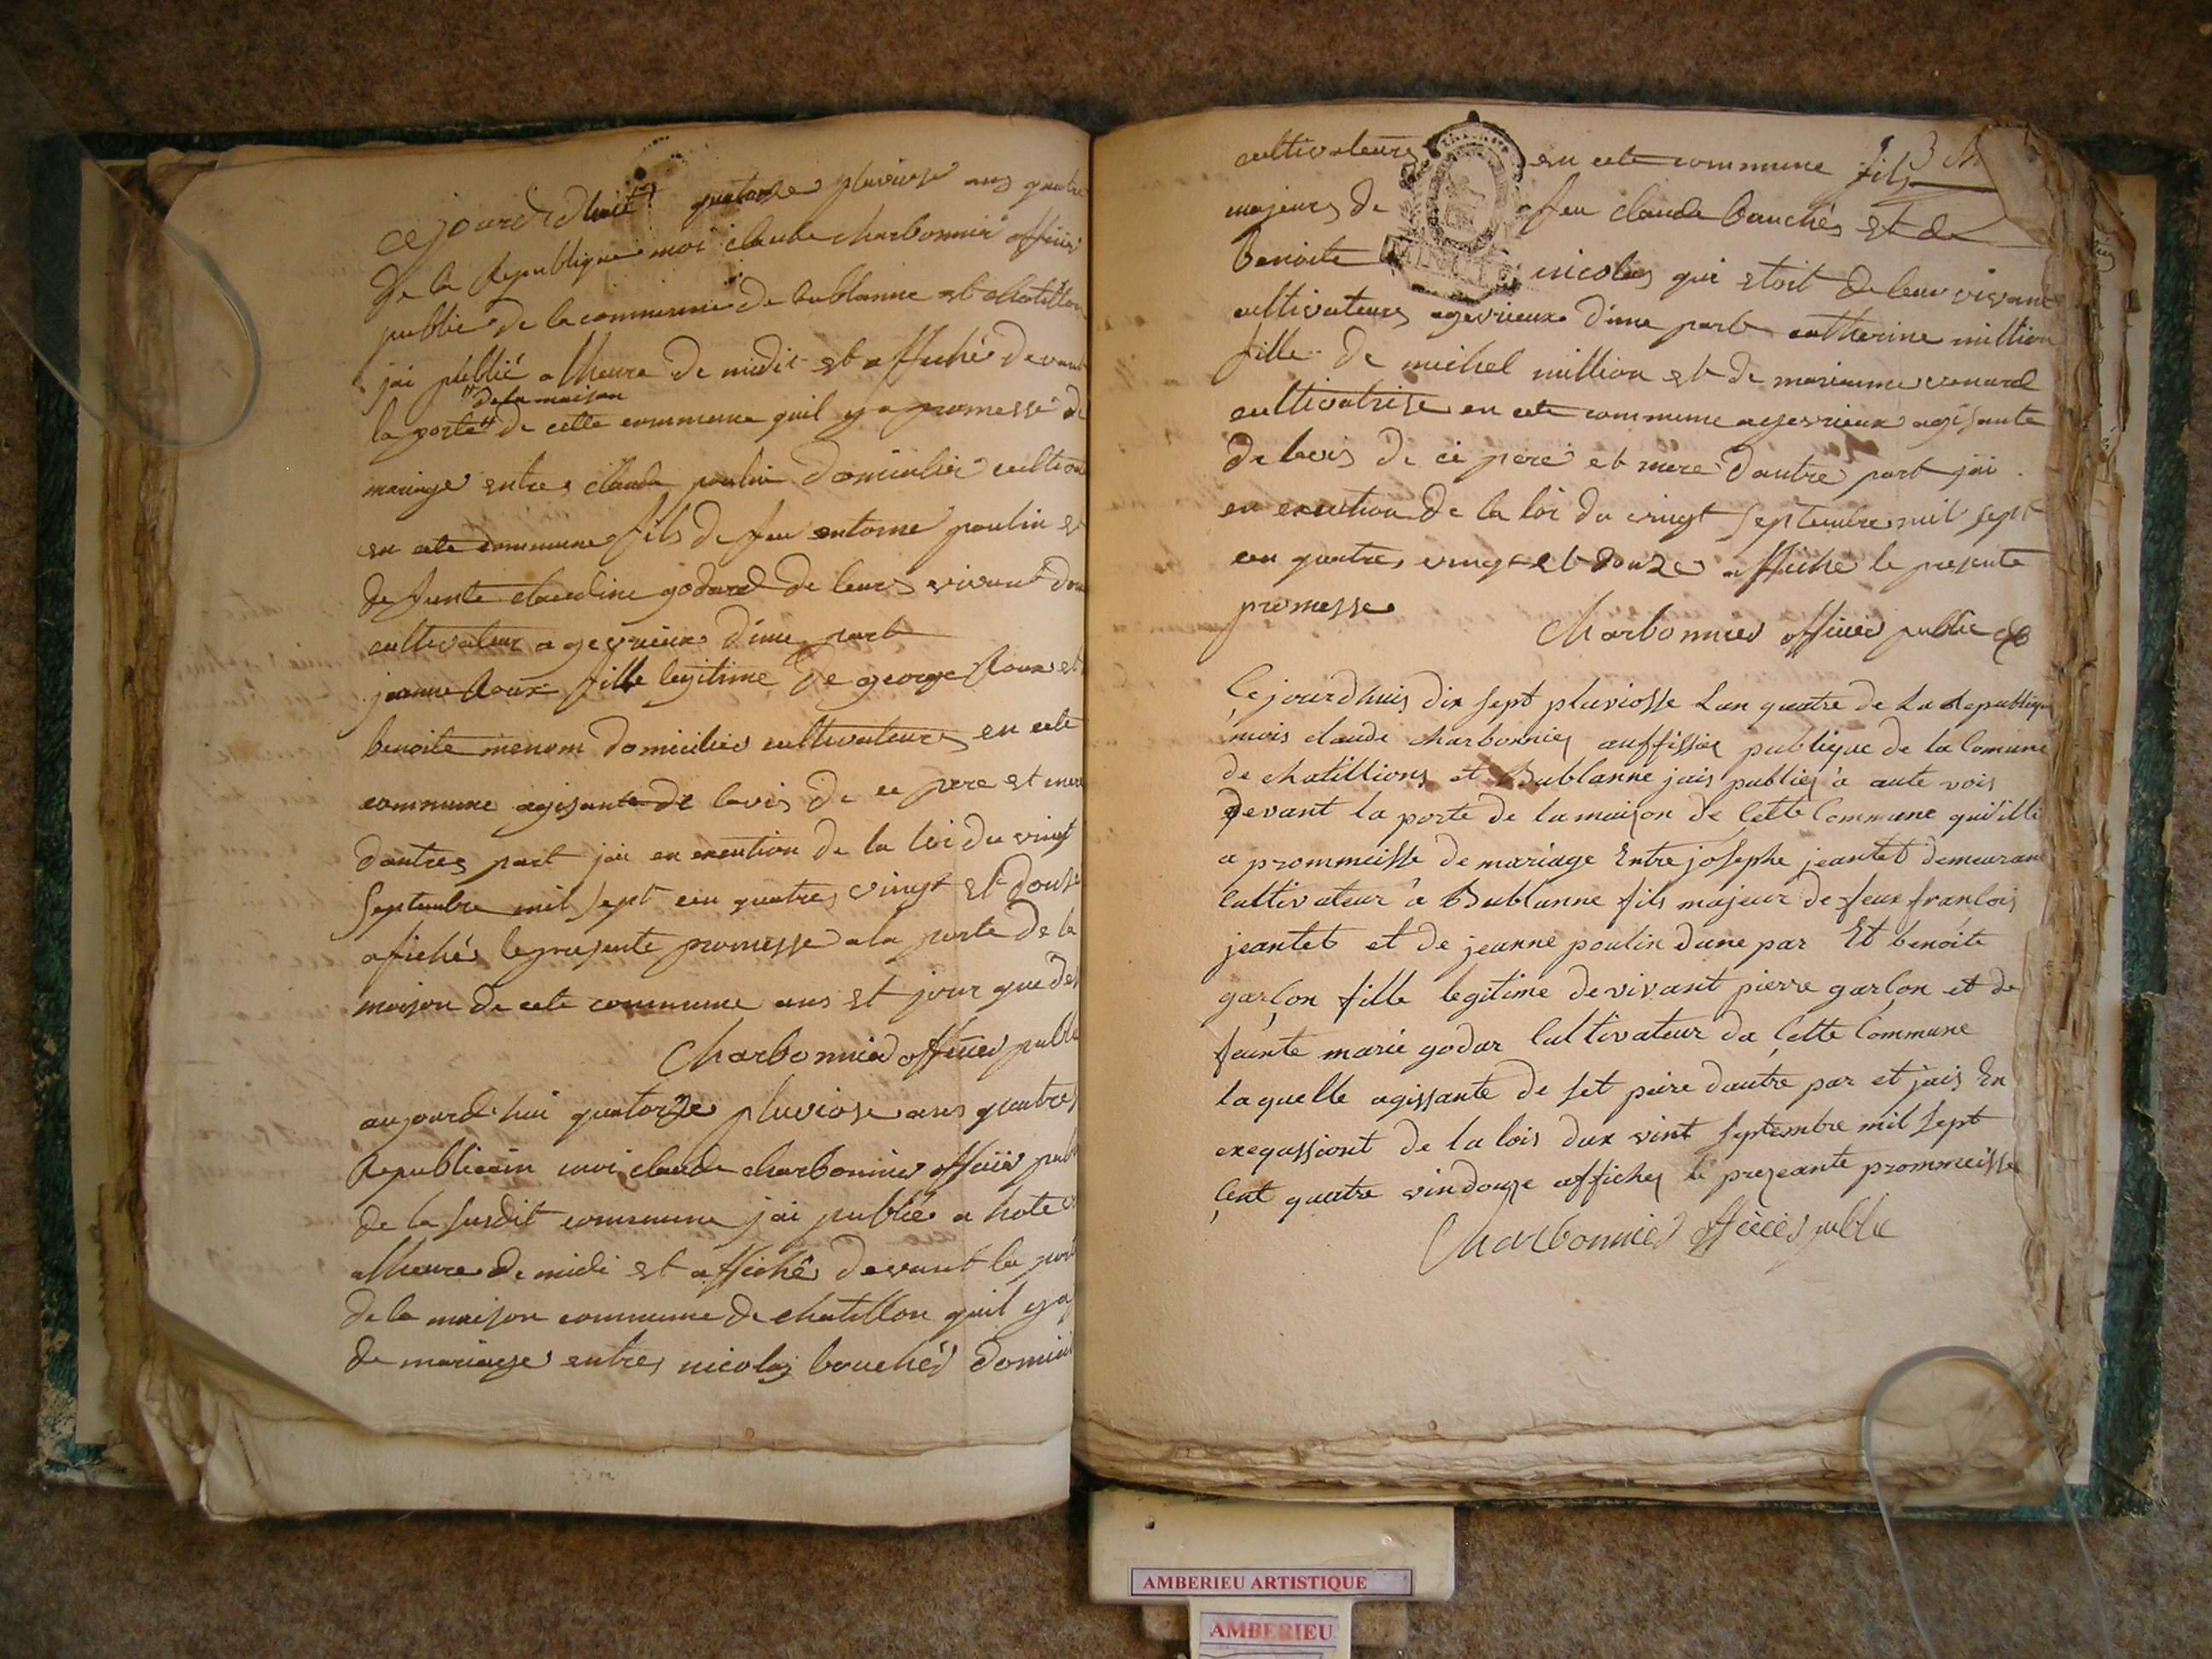 cejourdhuit quatorze pluviose ans quatre
de la Republique moi claude charbonnier officier
public de la commune de bublanne et chatillon
jai publié a lheure de midit et affiché devant
"de la maison
la porte" de cette commune quil y a promesse de
mariage entres claude poulin domicilié cultiva
en cete commune fils de feu antoine poulin et
defunte claudine godard de leurs vivant
cultivateur agevieux dune part
jeanne Roux fille legitime de george Roux et
benoite menom domicilies cultivateurs en cete
commune agisante de lavis de ce pere et mere
dautres part jai en execution de la loi du vingt
septembre mil sept cen quatres vingt et douse
afichés le presente promesse a la porte de la
maison de cete commune ans et jour que des
Charbonnier officier public
aujourd'hui quatorze pluviose ans quatres
Republicain moi claude charbonnier officier publ
de la susdit commune jai publié a hote v
alheure de midi et affichés devant la port
de la maison commune de chatillon quil y a
de mariage entres nicolas bouchés domicil
3
cultivateurs en cete commune fils
majeurs de feu claude bouchés et de
benoite nicolas qui etoit de leur vivant
cultivateurs agevieux dune part catherine million
fille de michel million et de marianne venard
cultivatrise en cete commune agevieux agisante
de lavis de ci pere et mere dautre part jai
en execution de la loi du vingt septembre mil sept
cen quatres vingt et douze affiche le presente
promesse
Charbonnier officier public
Cejourdhuis dix sept pluviosse Lan quatre de La Republique
mois claude charbonnier auffissier publique de la Comune
de chatillions et Bublanne jais publiez à aute vois
devant la porte de la maison de Cette Commune quil illi
a prommeisse de mariage Entre josephe jeantet demeurant
Cultivateur à Bublanne fils majeur de feux francois
jeantet et de jeanne poulin dune par Et benoite
garçon fille legitime devivant pierre garçon et de
feunte marie godar Cultivateur da Cette Commune
laquelle agissante de set peire dautre par et jais En
exegassiont de la lois dux vint septembre mil sept
Cent quatre vindouze affichez le prezeante prommeisse
Charbonnier officier public
MINUTE
AMBERIEU ARTISTIQUE
AMBERIEU